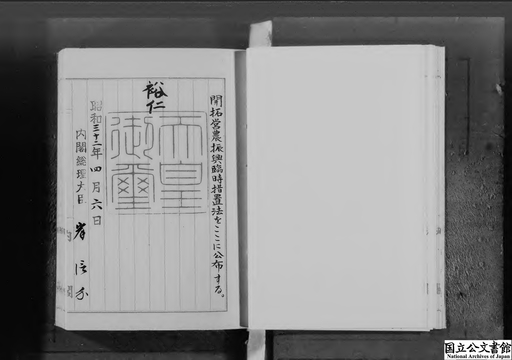 開拓営農振興臨時措置法をここに公布する。
裕仁
天皇
御璽
昭和三十二年四月六日
内閣総理大臣 岸信介
国立公文書館
National Archives of Japan